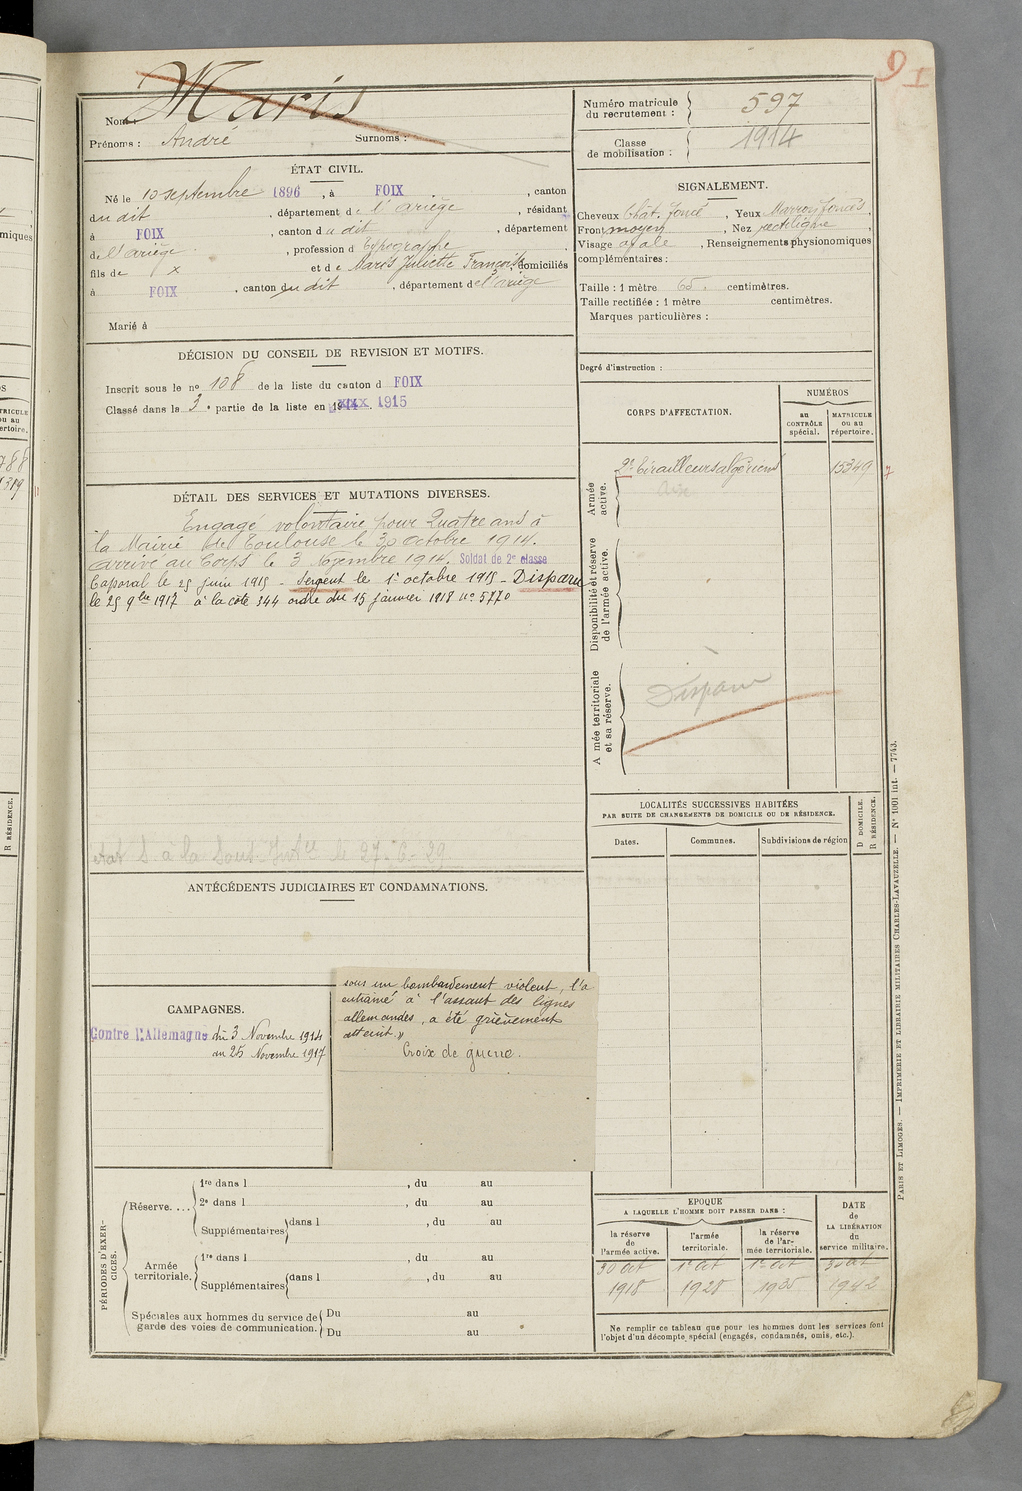 91
Nom : Maris
Prénoms : André Surnoms :
Numéro matricule du recrutement : 597
Classe de mobilisation : 1914
ÉTAT CIVIL.
Né le 10 septembre 1896, à FOIX, canton
du dit, département de l'Ariège, résidant
à FOIX, canton du dit, département
de l'Ariège, profession de typographe
fils de x et de Maris Juliette Françoise, domiciliés
à FOIX, canton du dit, département de l'Ariège
Marié à
SIGNALEMENT.
Cheveux Chât. foncé, Yeux Marron foncés,
Front moyen, Nez rectiligne,
Visage ovale, Renseignements physionomiques
complémentaires :
Taille : 1 mètre 65. centimètres.
Taille rectifiée : 1 mètre centimètres.
Marques particulières :
Degré d'instruction :
DÉCISION DU CONSEIL DE REVISION ET MOTIFS.
Inscrit sous le no 108 de la liste du canton d FOIX
Classé dans la 3e partie de la liste en 1915
CORPS D'AFFECTATION.
NUMÉROS
au CONTRÔLE spécial.
MATRICULE ou au répertoire.
Armée active.
2e Tirailleurs algériens 15349
Disponibilité et réserve de l'armée active.
Armée territoriale et sa réserve.
Disparu
DÉTAIL DES SERVICES ET MUTATIONS DIVERSES.
Engagé volontaire pour Quatre ans à
la Mairie de Toulouse le 30 octobre 1914.
Arrivé au Corps le 3 Novembre 1914. Soldat de 2e classe
Caporal le 25 juin 1915 - Sergent le 1er octobre 1915 - Disparu
le 25 9bre 1917 à la côte 344 ordre du 15 janvier 1918 no 5770
le 27.6.29
LOCALITÉS SUCCESSIVES HABITÉES
PAR SUITE DE CHANGEMENTS DE DOMICILE OU DE RÉSIDENCE.
Dates. Communes. Subdivisions de région
D DOMICILE.
R RÉSIDENCE.
ANTÉCÉDENTS JUDICIAIRES ET CONDAMNATIONS.
CAMPAGNES.
Contre l'Allemagne du 3 Novembre 1914
au 25 Novembre 1917
sous un bombardement violent, l'a
entrainé à l'assaut des lignes
allemandes, a été grièvement
atteint.»
Croix de guerre.
PÉRIODES D'EXERCICES.
Réserve....
1re dans l , du au
2e dans l , du au
Supplémentaires dans l , du au
Armée territoriale.
1re dans l , du au
Supplémentaires dans l , du au
Spéciales aux hommes du service de garde des voies de communication.
Du au
Du au
EPOQUE
A LAQUELLE L'HOMME DOIT PASSER DANS :
la réserve de l'armée active.
l'armée territoriale.
la réserve de l'armée territoriale.
DATE de LA LIBÉRATION du service militaire.
30 oct 1er oct 1er oct 30 oct
1918 1928 1935 1942
Ne remplir ce tableau que pour les hommes dont les services font
l'objet d'un décompte spécial (engagés, condamnés, omis, etc.).
PARIS ET LIMOGES. — IMPRIMERIE ET LIBRAIRIE MILITAIRES CHARLES-LAVAUZELLE. — N° 1001 int. — 7743.